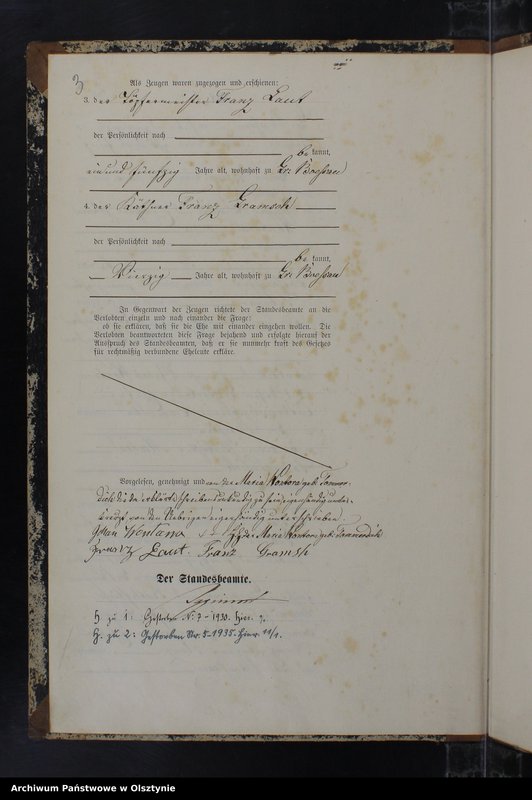 3
Als Zeugen waren zugezogen und erschienen:
3. der Töpfermeister Franz Laut
der Persönlichkeit nach
be kannt,
ein und fünfzig Jahre alt, wohnhaft zu Gr:
4. der Käthner Franz Gramsch
der Persönlichkeit nach
be kannt,
Vierzig Jahre alt, wohnhaft zu Gr:
In Gegenwart der Zeugen richtete der Standesbeamte an die
Verlobten einzeln und nach einander die Frage:
ob sie erklären, daß sie die Ehe mit einander eingehen wollen. Die
Verlobten beantworteten diese Frage bejahend und erfolgte hierauf der
Ausspruch des Standesbeamten, daß er sie nunmehr kraft des Gesetzes
für rechtmäßig verbundene Eheleute erkläre.
Vorgelesen, genehmigt und von der Maria geb.
die erklärte schreibensunkundig zu sein eigenhändig unter-
kreuzt von den Uebrigen eigenhändig unterschrieben.
+++ der Maria geb.
Franz Laut Franz Gramsch
Der Standesbeamte.
H zu 1: Gestorben Nr. 7 - 1930. hier.
H. zu 2: Gestorben Nr. 5 - 1935. hier.
Archiwum Państwowe w Olsztynie